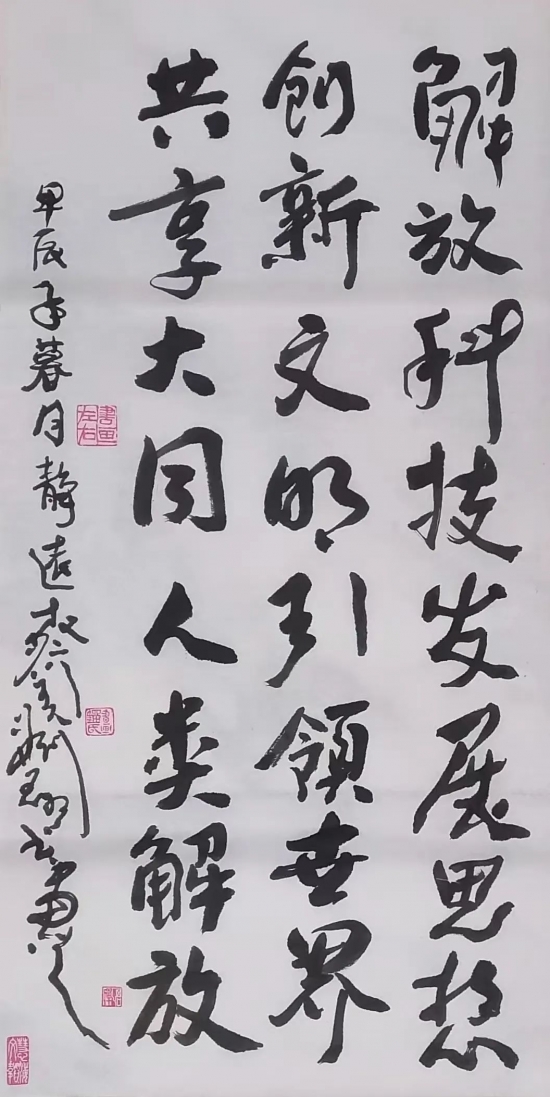 解放科技发展思想
创新文明引領世界
共享大同人类解放
甲辰年暮月静遠
書画左右